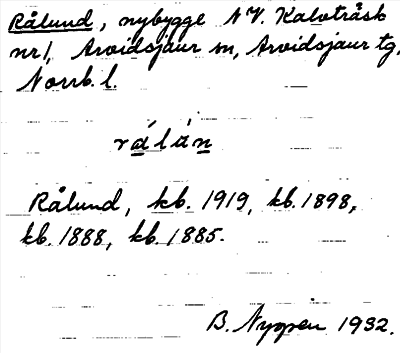 Rålund, nybygge N.V. Kalvträsk
nr 1, Arvidsjaur sn, Arvidsjaur tg,
Norrb. l.
rålån
Rålund, kb. 1919, kb. 1898,
kb. 1888, kb. 1885.
B. 1932.